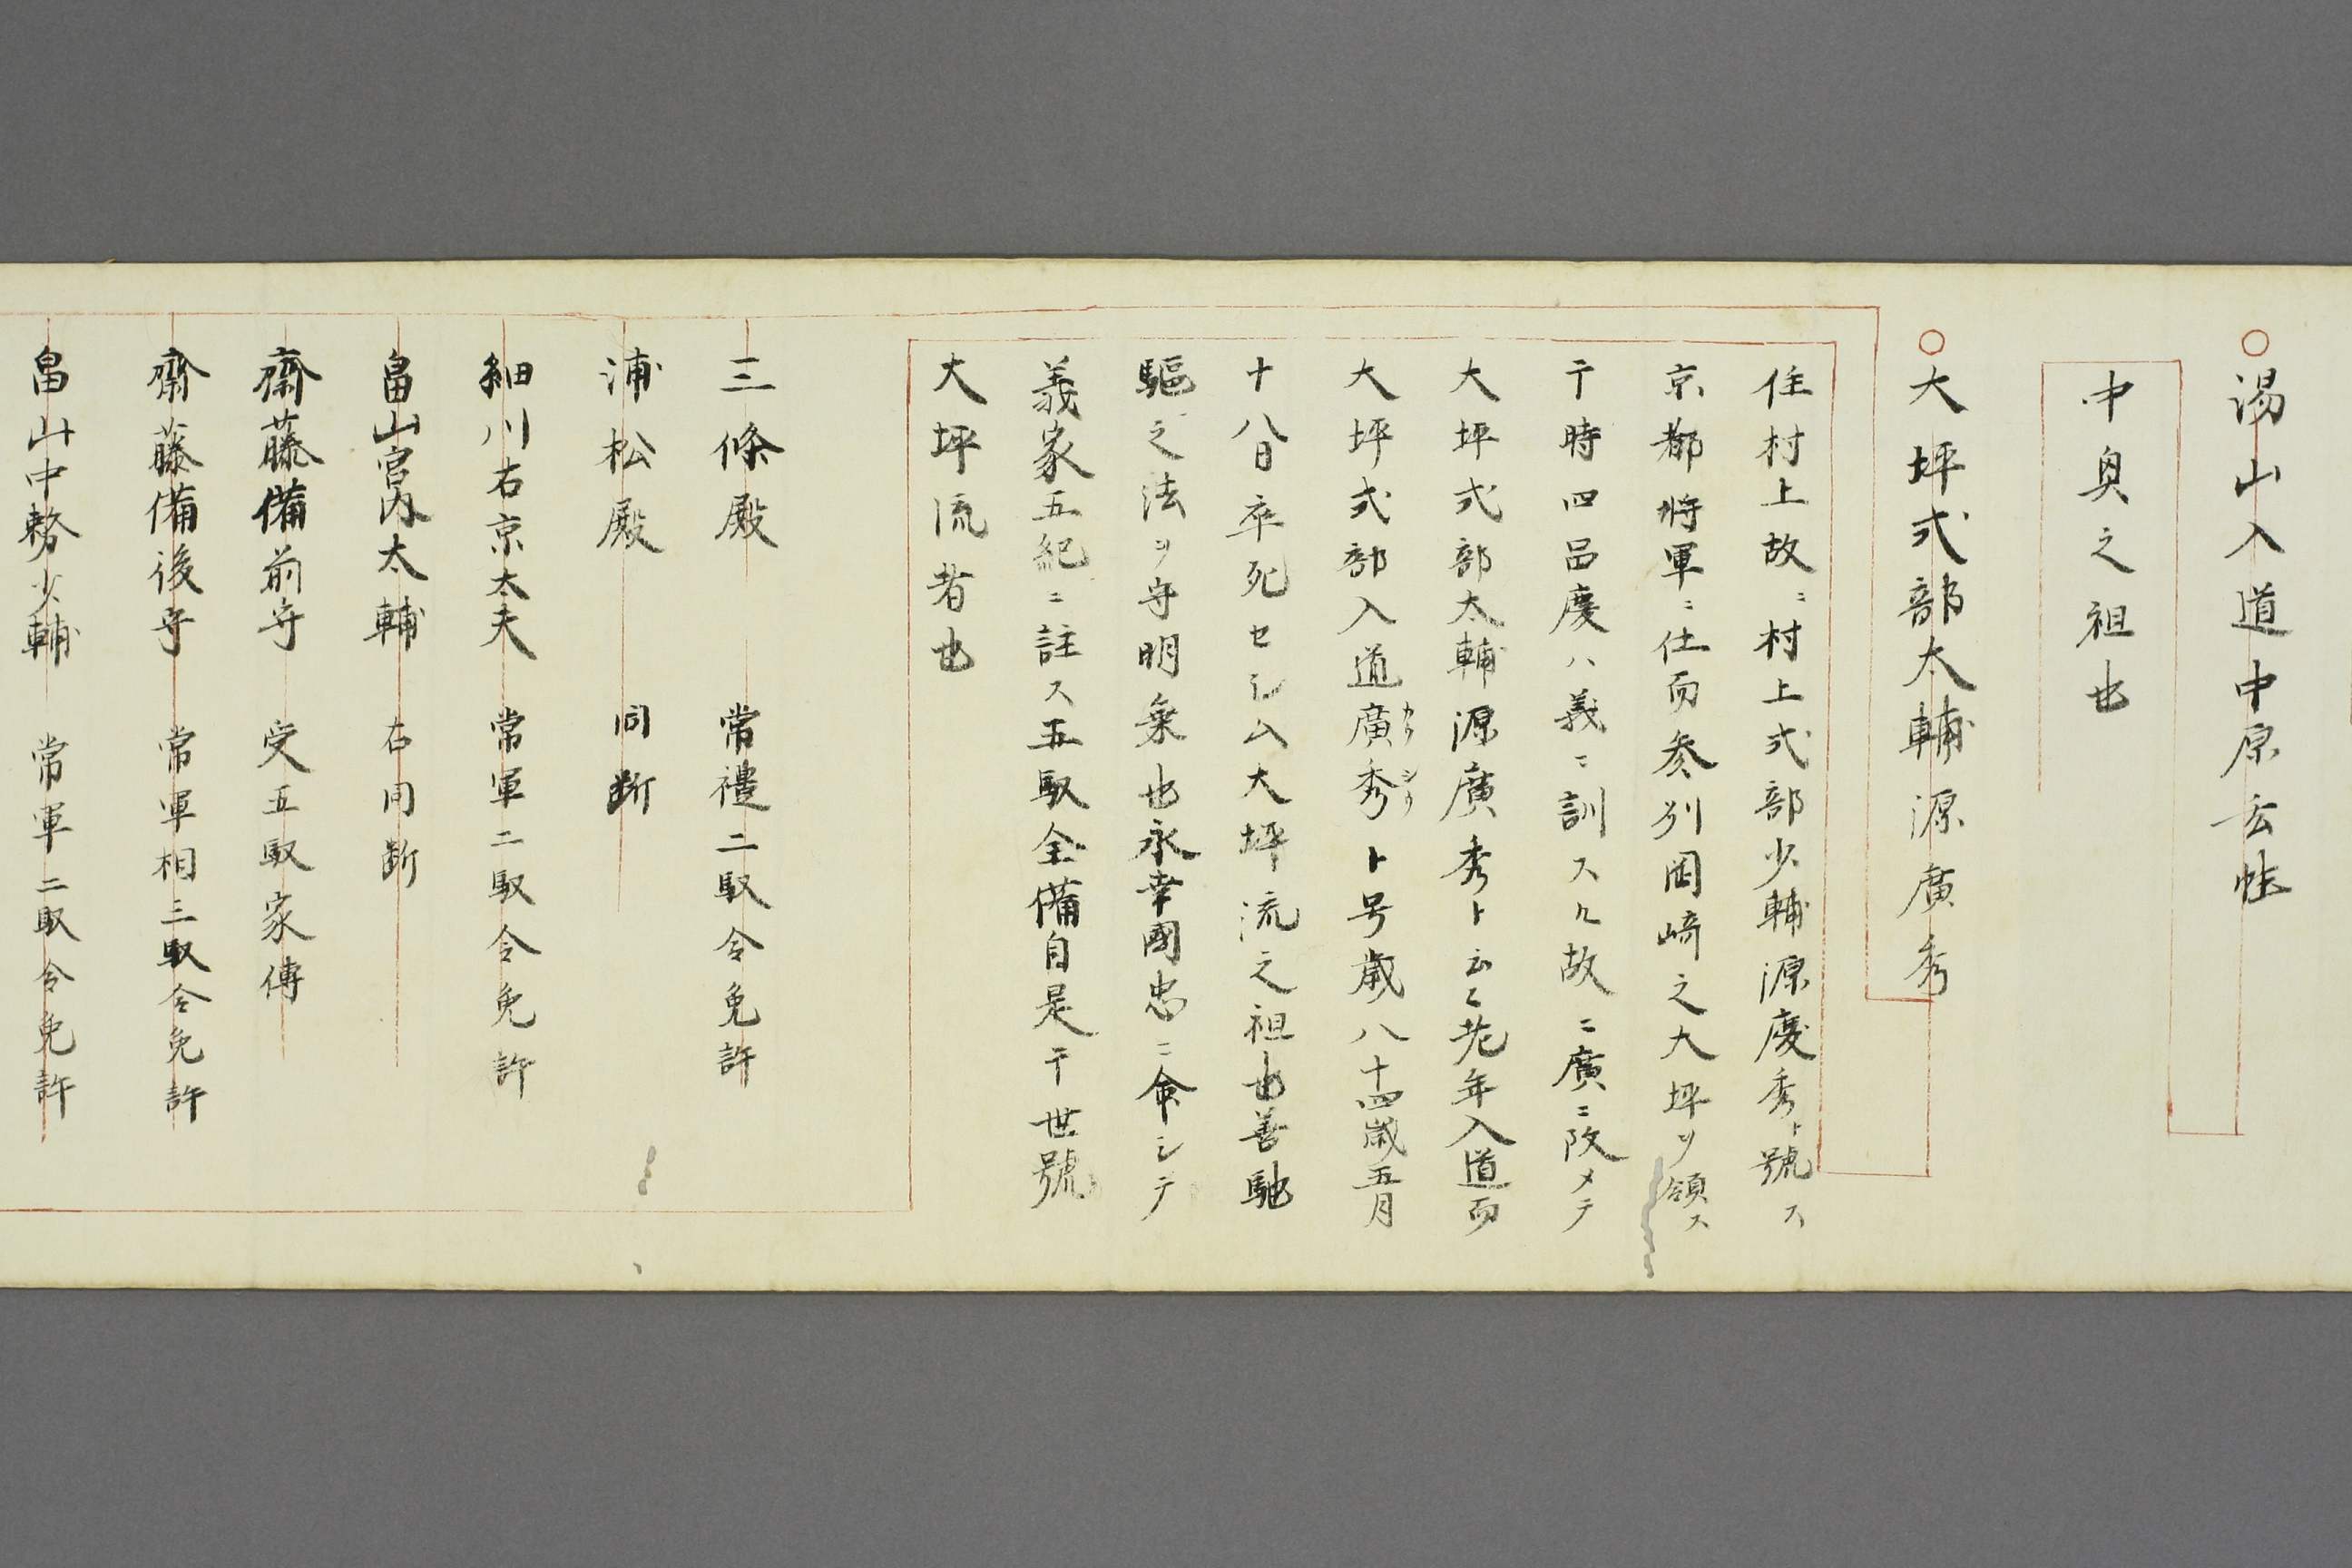 湯山入道中原玄性
中奥之祖也
大坪式部太輔源廣秀
住村上故ニ村上式部少輔源慶秀ト號ス
京都将軍ニ仕而参列岡﨑之大坪ヲ領ス
于時四品慶ハ義ニ訓スル故ニ廣ニ改メテ
大坪式部太輔源廣秀ト云乙老年入道而
大坪式部入道廣秀ト号歳八十四歳五月
カウ シウ
十八日卒死セシム大坪流之祖也善馳
驅之法ヲ守明乗也永幸國忠ニ命シテ
義家五紀ニ註ス五馭全備自是于世號
大坪流者也
三條殿 常禮二馭令免許
浦松殿 同断
細川右京太夫 常軍二馭令免許
畠山宮内太輔 右同断
齋藤備前守 受五馭家傳
齋藤備後守 常軍相三馭令免許
畠山中務少輔 常軍二馭令免許